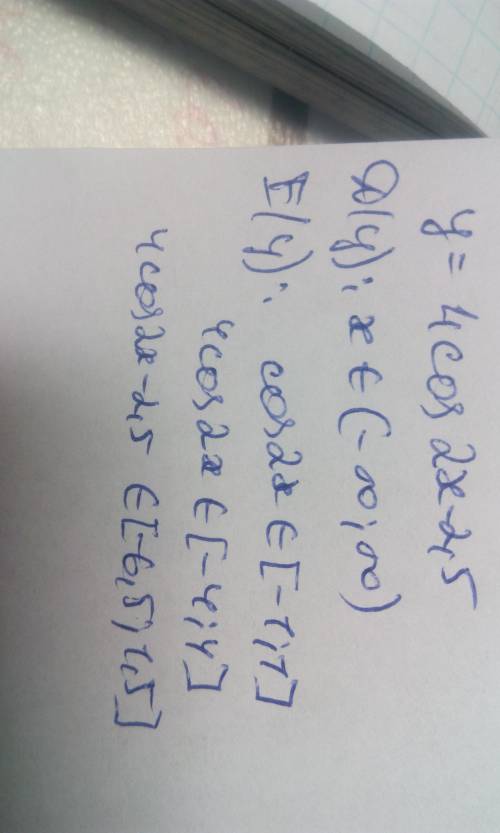 y = 4cos2x-2,5
D(y): x ∈ (-∞; ∞)
E(y): cos2x ∈ [-1;1]
4cos2x ∈ [-4;4]
4cos2x-2,5 ∈ [-6,5; 1,5]